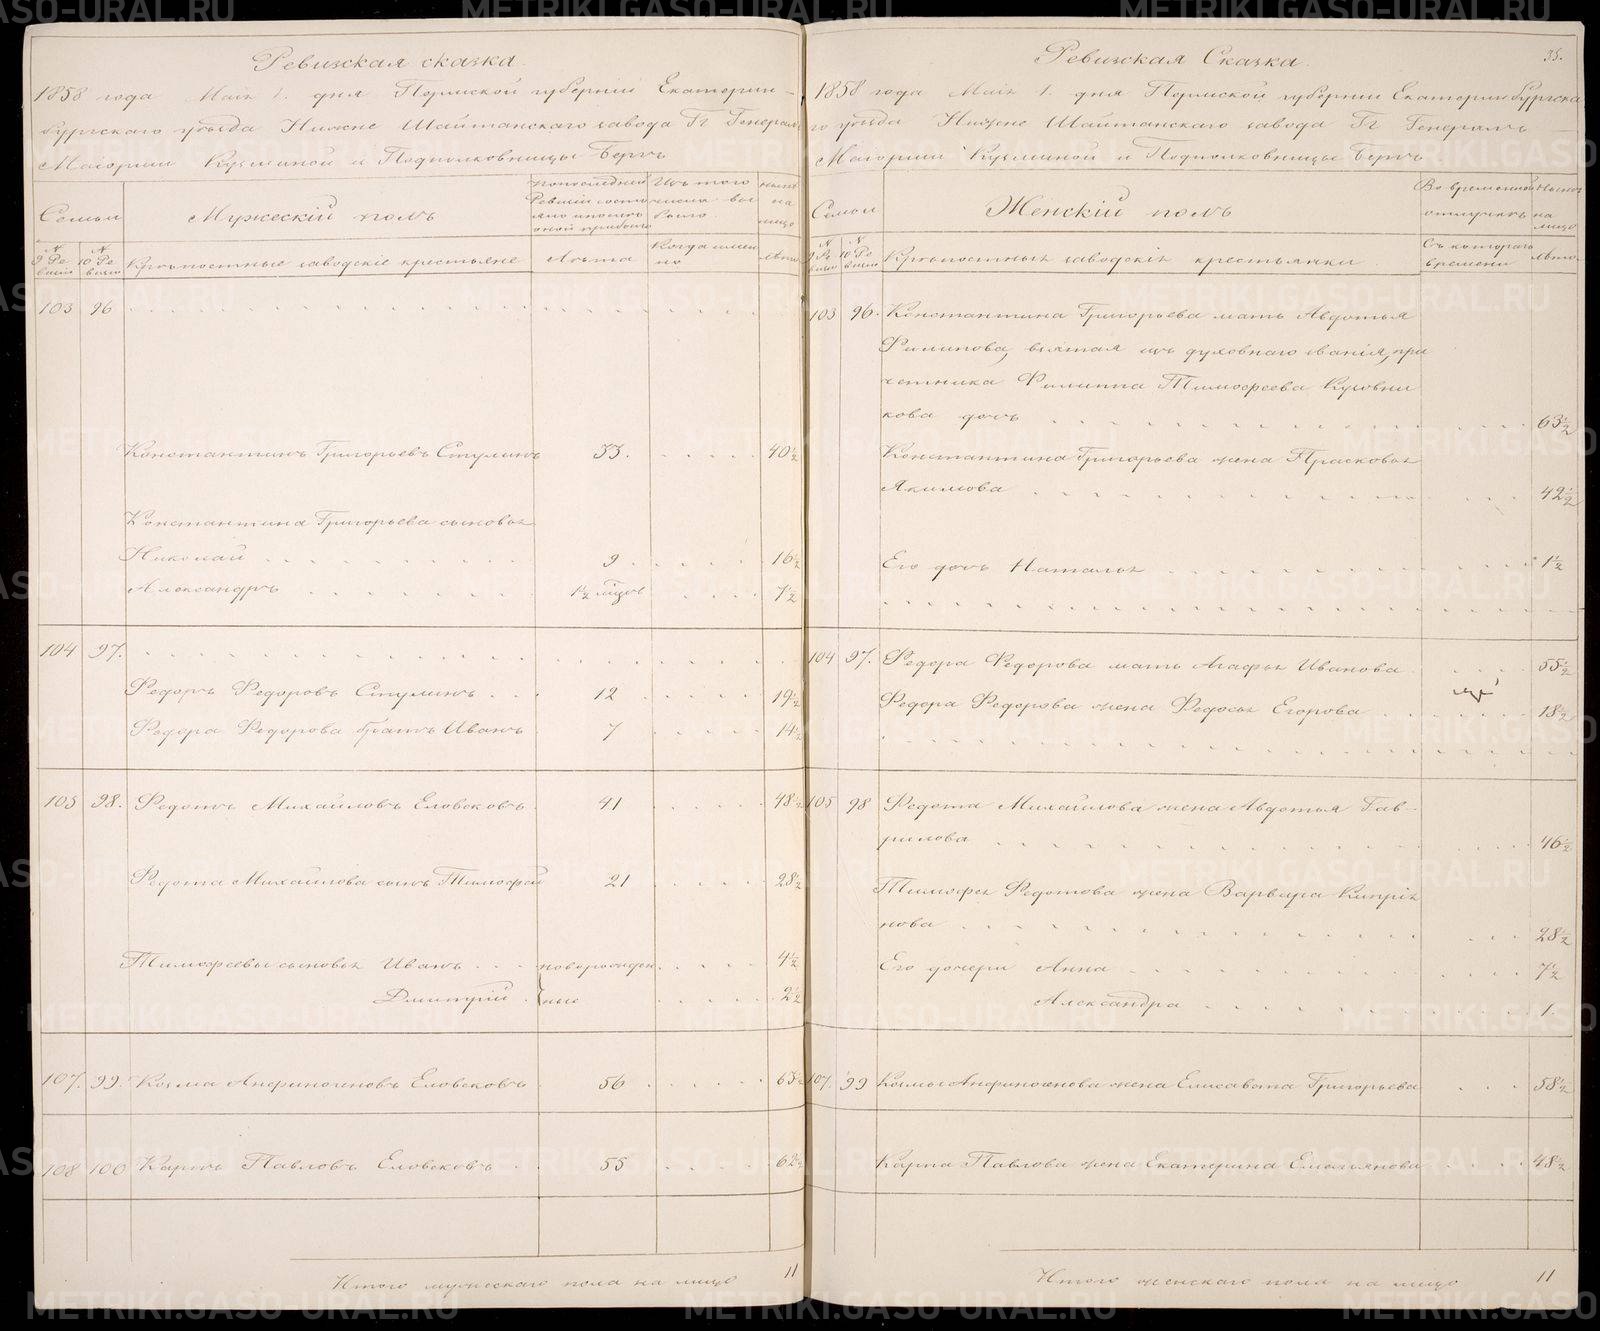 Ревизская сказка.
1858 года Маія 1. дня Пермской губерніи Екатерин-
бургскаго уѣзда Нижне Шайтанскаго завода Гг Генералъ
Маіорши Кузьминой и Подполковницы Бергъ
Семьи
Мужескій полъ
Изъ того числа выбыло
нынѣ на лицо
№ 9 Ревизіи
№ 10 Ревизіи
Крѣпостные заводскіе крестьяне
Лѣта
Когда именно
лѣта
103 96
Константинъ Григорьевъ Стулинъ 33. 40½
Константина Григорьева сыновья
Николай 9 16½
Александръ 1½ мѣсяц 7½
104 97.
Федоръ Федоровъ Стулинъ 12 19½
Федора Федорова братъ Иванъ 7 14½
105 98. Федотъ Михайловъ Еловсковъ 41 48½
Федота Михайлова сынъ Тимофей 21 28½
Тимофеевы сыновья Иванъ новорожден 4½
Дмитрій ные 2½
107. 99. Козма Анфиногеновъ Еловсковъ 56 63½
108 100 Карпъ Павловъ Еловсковъ 55 62½
Итого мужескаго пола на лицо 11
35.
Ревизская Сказка.
1858 года Маія 1. дня Пермской губерніи Екатеринбургска
го уѣзда Нижне Шайтанскаго завода Гг Генералъ
Маіорши Кузьминой и Подполковницы Бергъ
Семьи
Женскій полъ
Во временной отлучкѣ
Нынѣ на лицо
№ 9 Ревизіи
№ 10 Ревизіи
Крѣпостныя заводскія крестьянки
Съ котораго времени
лѣта
103 96. Константина Григорьева мать Авдотья
Филипова, взятая изъ духовнаго званія, при
четника Филиппа Тимофеева Кузовни
кова дочь 63½
Константина Григорьева жена Прасковья
Якимова 42½
Его дочь Наталья 1½
104 97. Федора Федорова мать Агафья Иванова 55½
Федора Федорова жена Федосья Егорова 18½
105 98 Федота Михайлова жена Авдотья Гав-
рилова 46½
Тимофея Федотова жена Варвара Кипріа
нова 28½
Его дочери Анна 7½
Александра 1.
107. 99 Козмы Анфиногенова жена Елисавета Григорьева 58½
Карпа Павлова жена Екатерина Емельянова 48½
Итого женскаго пола на лицо 11